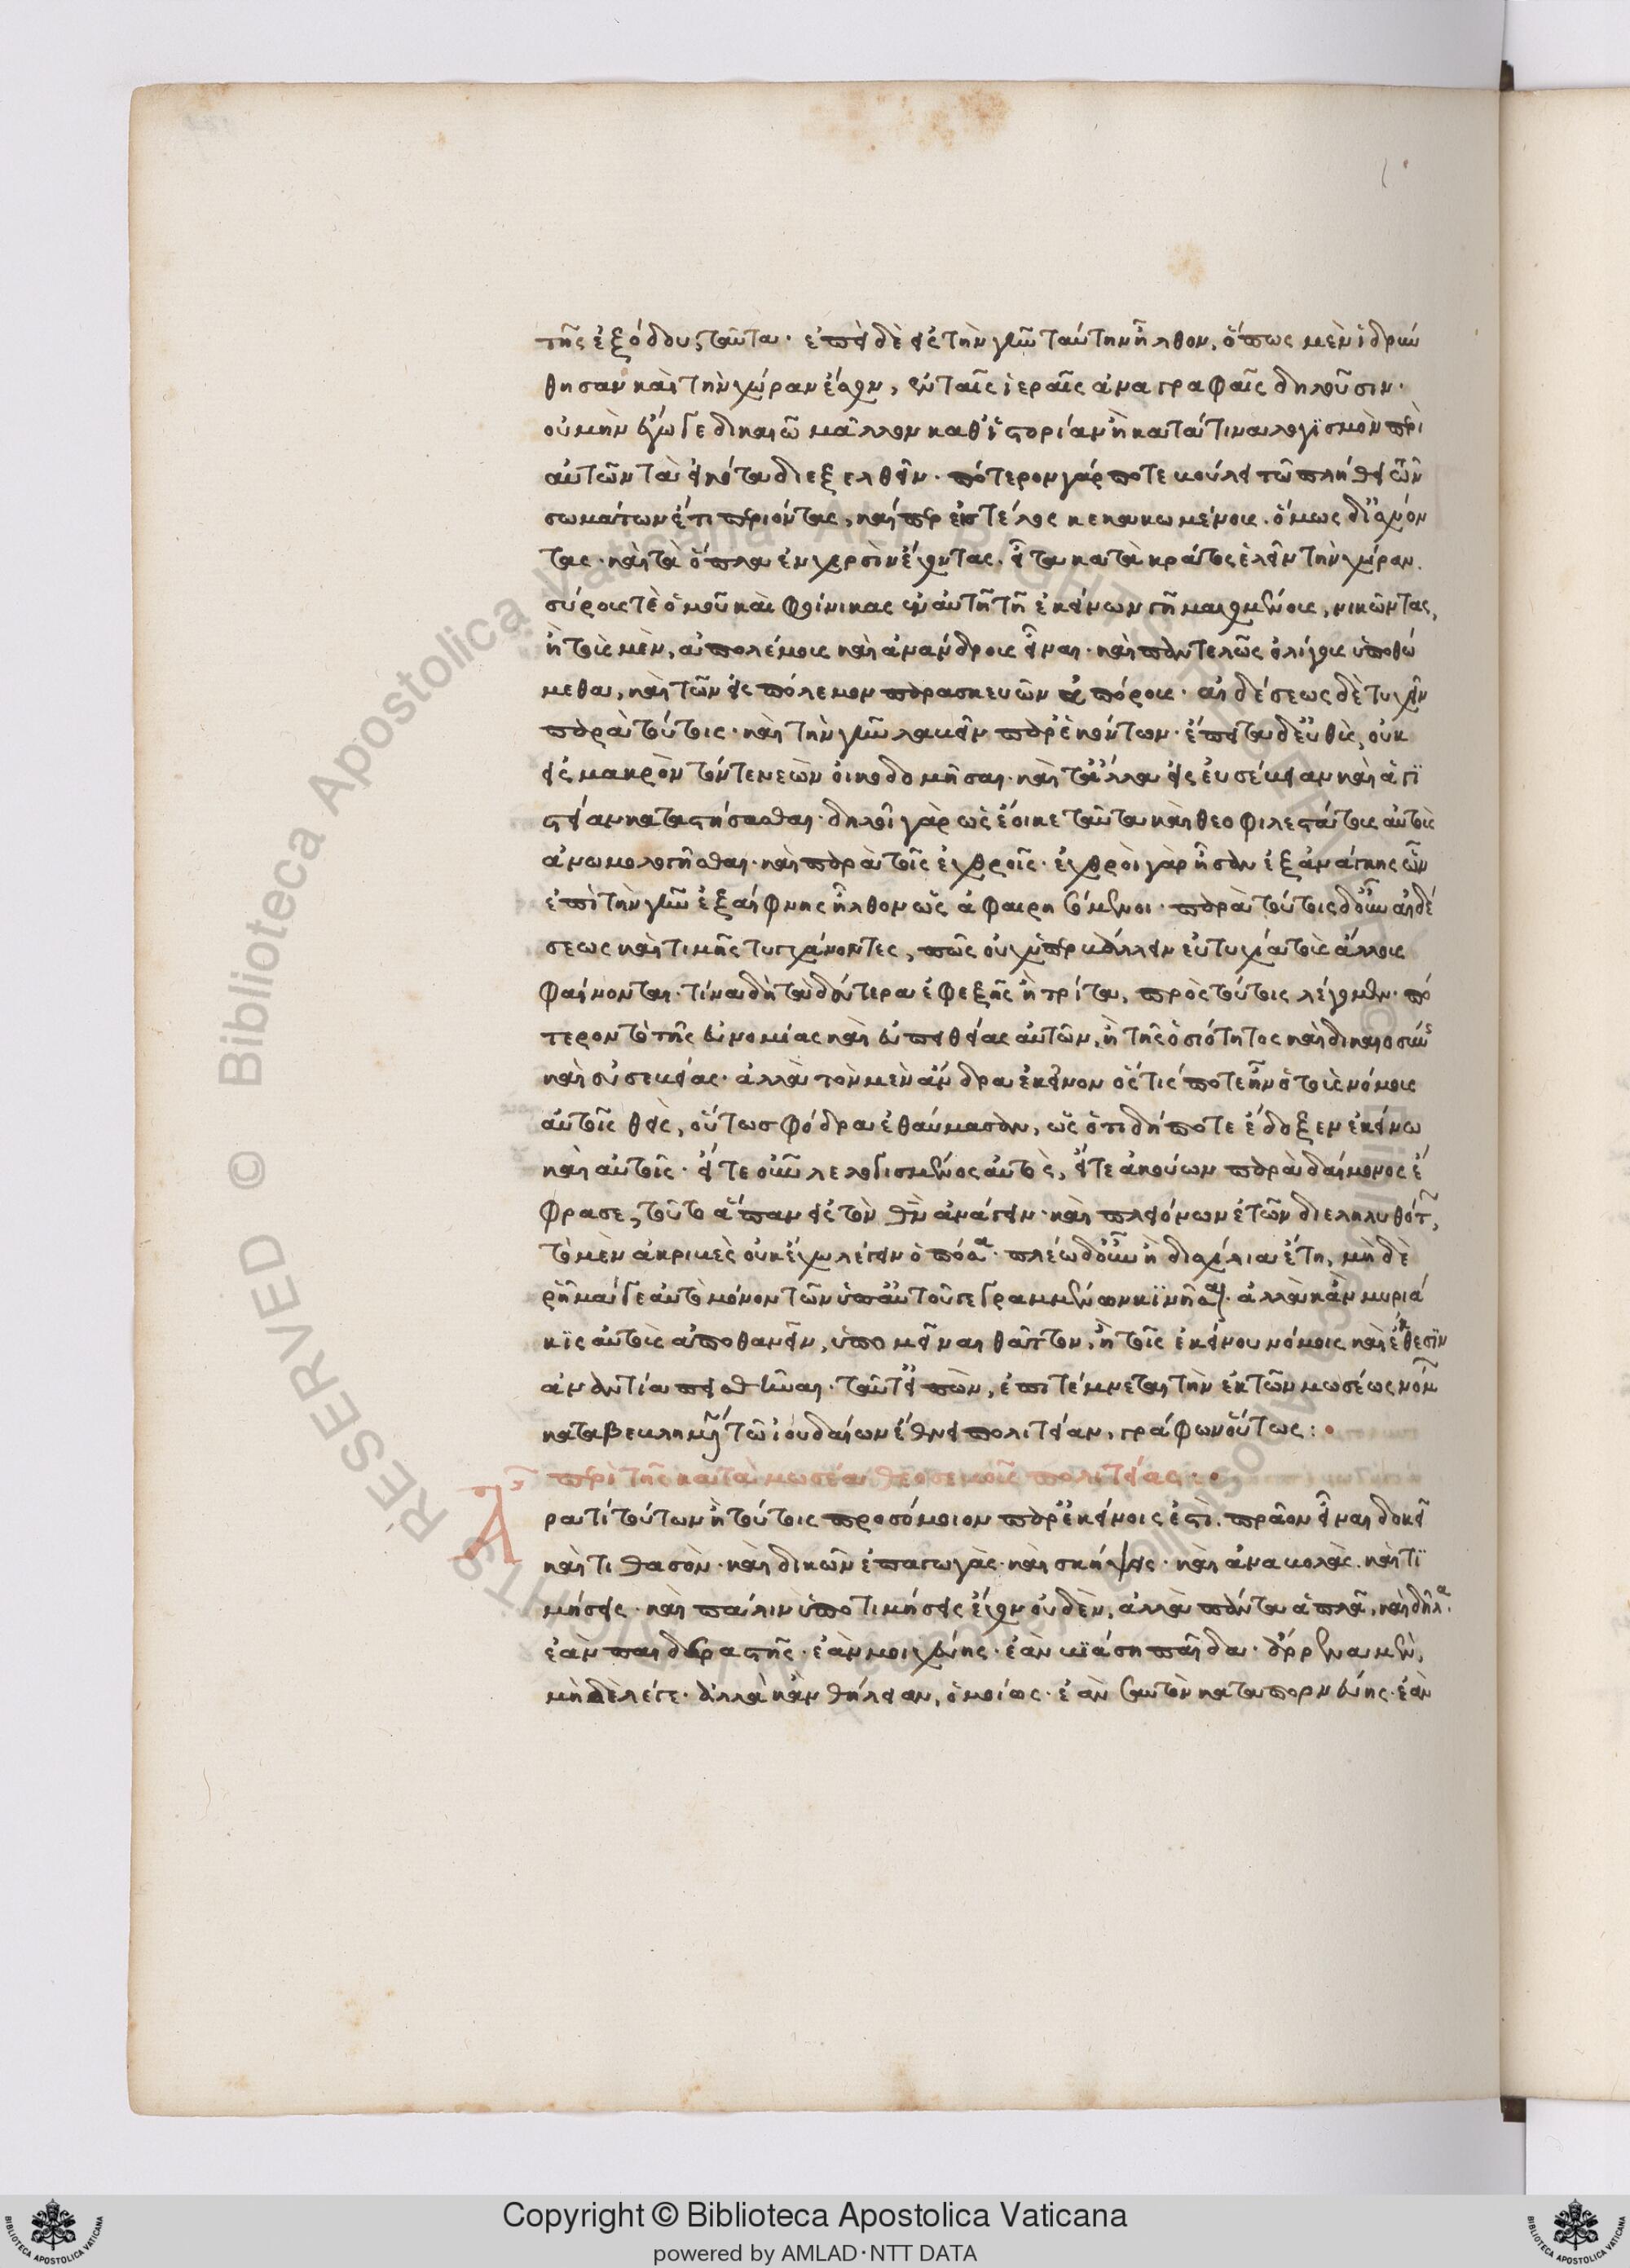 τῆς ἐξόδου ταῦτα· ἐπεὶ δὲ εἰς τὴν γῆν ταύτην ἦλθον, ὅπως μὲν ἱδρύν
θησαν καὶ τὴν χώραν ἔσχον, ἐν ταῖς ἱεραῖς ἀναγραφαῖς δηλοῦσιν·
οὐ μὴν ἔγωγε δικαιῶ μᾶλλον καθ' ἱστορίαν ἢ κατά τινα λογισμὸν περὶ
αὐτῶν τὰ εἰκότα διεξελθεῖν· πότερον γάρ ποτε βούλει τῷ πλήθει τῶν
σωμάτων ἔτι περιόντας, καίπερ εἰς τέλος κεκακωμένους. ὅμως δ' ἰσχύον
τας· καὶ τὰ ὅπλα ἐν χερσὶν ἔχοντας. εἶτα κατὰ κράτος ἑλεῖν τὴν χώραν.
σύρους τὲ ὁμοῦ καὶ φοίνικας ἐν αὐτῇ τῇ ἐκείνων γῇ μαχομένους, νικῶντας,
ἢ τοὺς μὲν, ἀπολέμους καὶ ἀνάνδρους εἶναι· καὶ παντελῶς ὀλίγους ὑποθώ
μεθα, καὶ τῶν εἰς πόλεμον παρασκευῶν ἀπόρους· αἰδέσεως δὲ τυχεῖν
παρὰ τούτοις· καὶ τὴν γῆν λαβεῖν παρ' ἑκόντων· ἔπειτα δ' εὐθὺς, οὐκ
εἰς μακρὸν τόν τε νεὼν οἰκοδομῆσαι· καὶ τἄλλα εἰς εὐσέβειαν καὶ ἁγι
στείαν καταστήσασθαι· δηλοῖ γὰρ ὡς ἔοικε ταῦτα καὶ θεοφιλεστάτους αὐτοὺς
ἀνωμολογῆσθαι· καὶ παρὰ τοῖς ἐχθροῖς· ἐχθροὶ γὰρ ἦσαν ἐξ ἀνάγκης ὧν
ἐπὶ τὴν γῆν ἐξαίφνης ἦλθον ὡς ἀφαιρησόμενοι· παρὰ τούτοις δ' οὖν αἰδέ
σεως καὶ τιμῆς τυγχάνοντες, πῶς οὐχ ὑπερβάλλειν εὐτυχίᾳ τοὺς ἄλλους
φαίνονται· τίνα δὴ τὰ δεύτερα ἐφεξῆς ἢ τρίτα, πρὸς τούτοις λέγωμεν· πό
τερον τὸ τῆς εὐνομίας καὶ εὐπειθείας αὐτῶν, ἢ τῆς ὁσιότητος καὶ δικαιοσύνης
καὶ εὐσεβείας· ἀλλὰ τὸν μὲν ἄνδρα ἐκεῖνον ὅστίς ποτε ἦν ὁ τοὺς νόμους
αὐτοῖς θεὶς, οὕτω σφόδρα ἐθαύμασαν, ὡς ὅτι δήποτε ἔδοξεν ἐκείνῳ
καὶ αὐτοῖς· εἴτε οὖν λελογισμένος αὐτὸς, εἴτε ἀκούων παρὰ δαίμονος ἔ
φρασε, τοῦτο ἅπαν εἰς τὸν θεὸν ἀνάγειν· καὶ πλειόνων ἐτῶν διεληλυθότων,
τὸ μὲν ἀκριβὲς οὐκ ἔχω λέγειν ὁπόσα· πλέω δ' οὖν ἢ δισχίλια ἔτη, μὴ δὲ
ῥῆμά γε αὐτὸ μόνον τῶν ὑπ' αὐτοῦ γεγραμμένων κινῆσαι· ἀλλὰ κἂν μυριά
κις αὐτοὺς ἀποθανεῖν, ὑπομεῖναι θᾶττον, ἢ τοῖς ἐκείνου νόμοις καὶ ἔθεσιν
ἐναντία πεισθῆναι· ταῦτ' εἰπὼν, ἐπιτέμνεται τὴν ἐκ τῶν μωσέως νόμων
καταβεβλημένην τῶ ἰουδαίων ἔθνει πολιτείαν, γράφων οὕτως:
περὶ τῆς κατὰ μωσέα θεοσεβοῦς πολιτείας·
Ἆρά τι τούτων ἢ τούτοις προσόμοιον παρ' ἐκείνοις ἐστὶ. πρᾶον εἶναι δοκεῖ
καὶ τιθασὸν· καὶ δικῶν ἐπαγωγὰς· καὶ σκήψεις· καὶ ἀναβολὰς. καὶ τι
μήσεις· καὶ πάλιν ὑποτιμήσεις ἔχον οὐδὲν, ἀλλὰ πάντα ἁπλᾶ, καὶ δῆλα.
ἐὰν παιδεραστῇς· ἐὰν μοιχεύῃς· ἐὰν βιάσῃ παῖδα· ἄρρενα μὲν,
μηδὲ λέγε· ἀλλὰ κἂν θήλειαν, ὁμοίως· ἐὰν σαυτὸν καταπορνεύῃς· ἐὰν
Copyright © Biblioteca Apostolica Vaticana
powered by AMLAD·NTT DATA